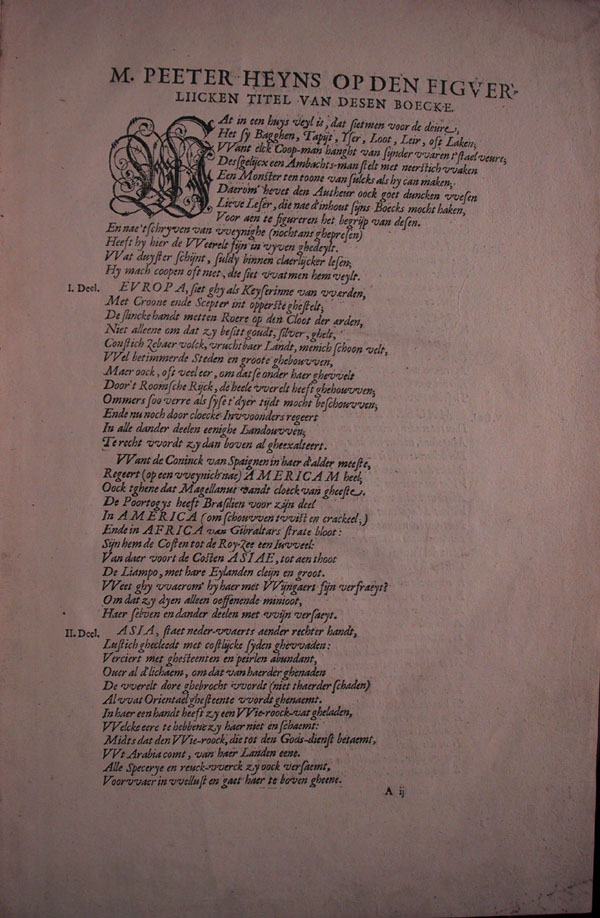 M. PEETER HEYNS OP DEN FIGVER-
LIICKEN TITEL VAN DESEN BOECKE.
WAt in een huys veyl is, dat sietmen voor de deure,
Het sy Bagghen, Tapijt, Yser, Loot, Leir, oft Laken,
VVant elck Coop-man hanght van sijnder vvaren t'stael veure,
Desgelijcx een Ambachts-man stelt met neerstich vvaken
Een Monster ten toone van sulcks als hy can maken,
Daerom hevet den Autheur oock goet duncken vvesen
Lieve Leser, die nae d'inhout sijns Boecks mocht haken,
Voor aen te figureren het begrijp van desen.
En nae't schryven van vveynighe (nochtans ghepresen)
Heeft hy hier de VVerelt fijn in vyven ghedeylt.
VVat duyster schijnt, suldy binnen claerlijcker lesen,
Hy mach coopen oft niet, die siet vvatmen hem veylt.
I. Deel. EVROPA, siet ghy als Keyserinne van vvarden,
Met Croone ende Scepter int opperste ghestelt,
De slincke handt metten Roere op den Cloot der arden,
Niet alleene om dat zy besitt goudt, silver, ghelt,
Constich Zebaer volck, vruchtbaer Landt, menich schoon velt,
VVel betimmerde Steden en groote ghebouvven,
Maer oock, oft veel eer, om datse onder haer ghevvelt
Door't Roomsche Rijck, de heele vverelt heeft ghehouvven,
Ommers soo verre als syse t'dyer tijdt mocht beschouvven,
Ende nu noch door cloecke Invvoonders regeert
In alle dander deelen eenighe Landouvven,
Te recht vvordt zy dan boven al gheexalteert.
VVant de Coninck van Spaignen in haer d'alder meeste,
Regeert (op een vveynich nae) AMERICAM heel,
Oock tghene dat Magellanus vandt cloeck van gheeste,
De Poortogys heeft Brasilien voor zijn deel
In AMERICA (om schouvven tvvist en crackeel,)
Ende in AFRICA van Gibraltars strate bloot:
Sijn hem de Costen tot de Roy-Zee een Iuvveel:
Van daer voort de Costen ASIAE, tot aen thoot
De Liampo, met hare Eylanden cleijn en groot.
VVeet ghy vvaerom' hy haer met VVijngaert sijn verfraeyt?
Om dat zy dyen alleen oeffenende minioot,
Haer selven en dander deelen met vvijn versaeyt.
II. Deel. ASIA, staet neder-vvaerts aender rechter handt,
Lustich ghecleedt met costlijcke syden ghevvaden:
Verciert met ghesteenten en peirlen abundant,
Over al d'lichaem, om dat van haerder ghenaden
De vverelt dore ghebrocht vvordt (niet thaerder schaden)
Al vvat Orientael ghesteente vvordt ghenaemt.
In haer een handt heeft zy een VVie-roock-vat gheladen,
VVelcke eere te hebbene zy haer niet en schaemt:
Midts dat den VVie-roock, die tot den Gods-dienst betaemt,
VVt Arabia comt, van haer Landen eene.
Alle Specerye en reuck-vverck zy oock versaemt,
Voorvvaer in vvellust en gaet haer te boven gheene.
A ij